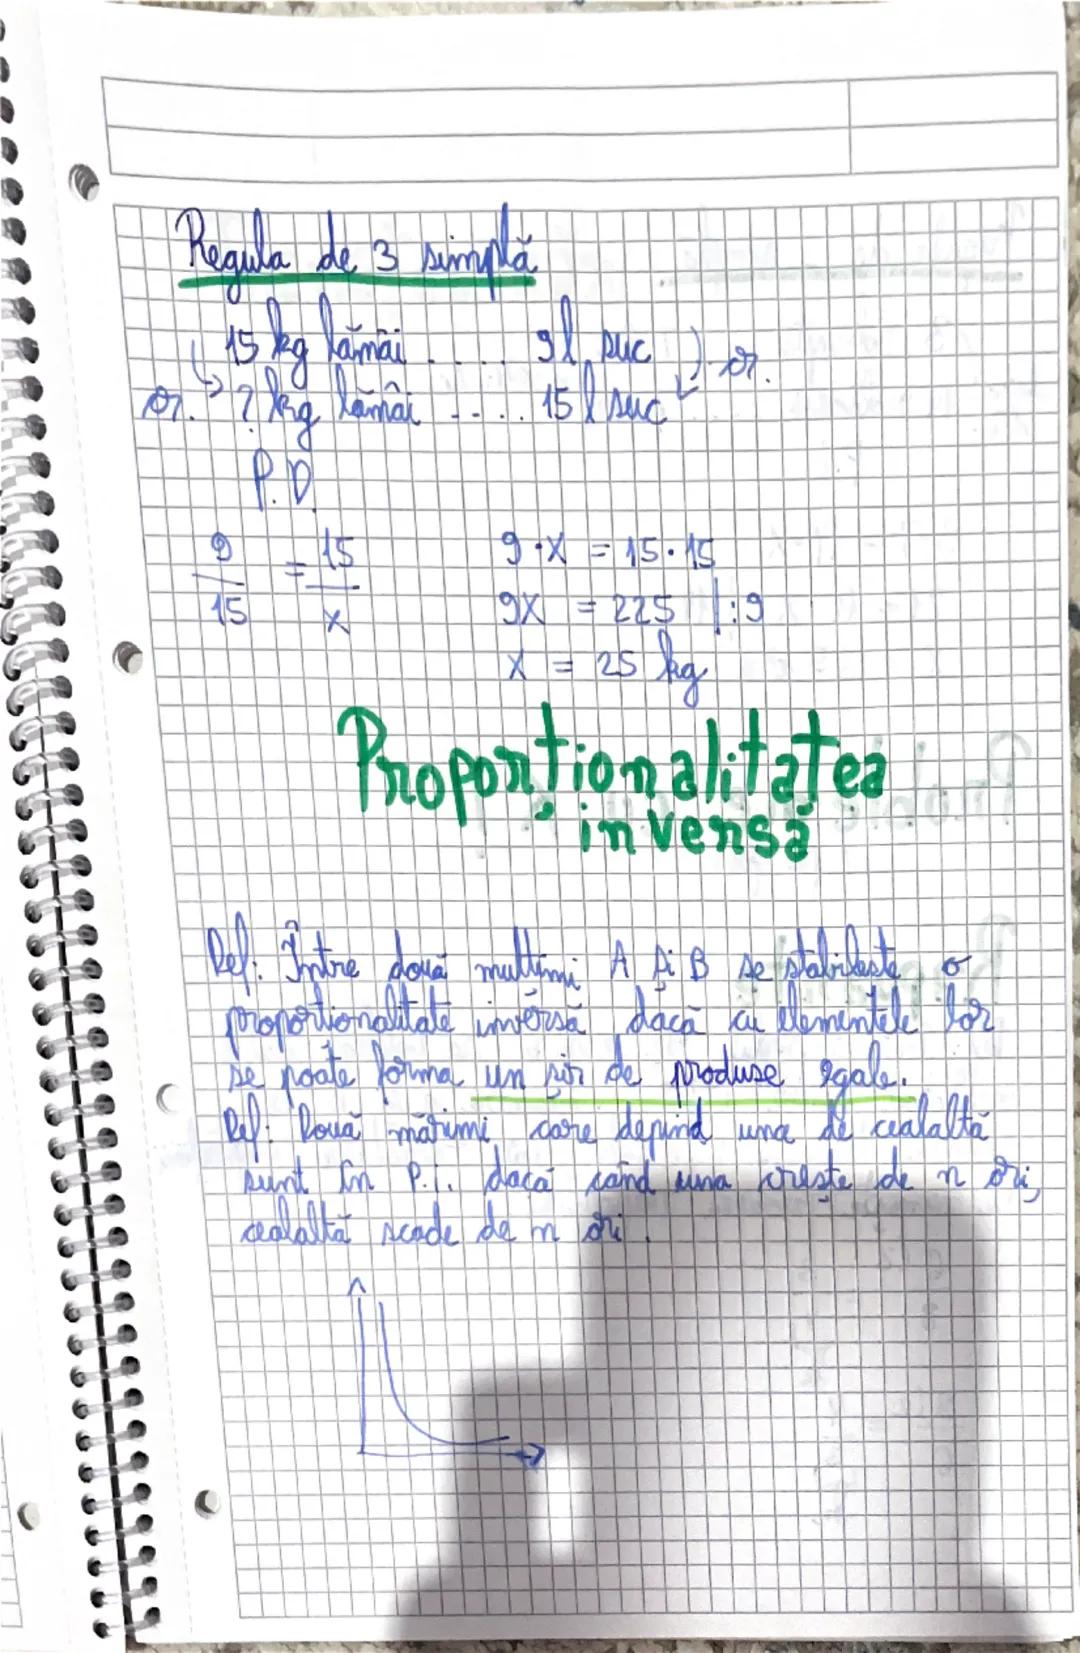 Regula de 3 simplă
15 kg lămâi .... 9 l suc cr.
cr. ? kg lămâi .... 15 l suc
P.D.
9/15 = 15/x
9·x = 15·15
9x = 225 |:9
x = 25 kg
Proporționalitatea
inversă
Def: Între două mulțimi A și B se stabilește o
proporționalitate inversă dacă cu elementele lor
se poate forma un șir de produse egale.
Def: Două mărimi care depind una de cealaltă
sunt în P.i. dacă când una crește de n ori,
cealaltă scade de n ori.